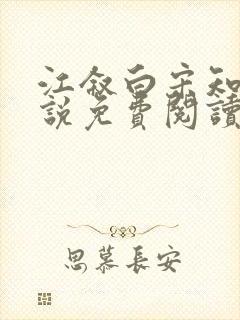 江叙白宋知
說免費閱讀
思慕長安